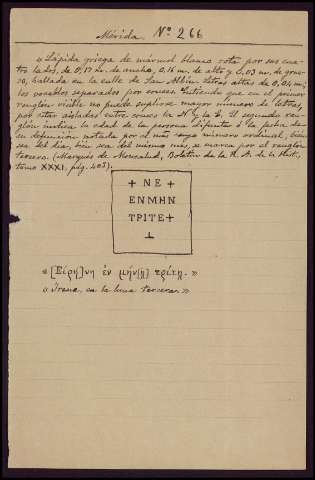 Mérida. Nº 266
«Lápida griega de mármol blanco rota por sus cua-
tro lados, de 0,17 m. de ancho, 0,16 m. de alto y 0,03 m. de grue-
so, hallada en la calle de San Albín. Letras altas de 0,04 m;
los vocablos separados por cruces. Entiendo que en el primer
renglón visible no puede suplirse mayor número de letras,
por estar aisladas entre cruces la N y la E. El segundo ren-
glón indica la edad de la persona difunta ó la fecha de
su defunción notada por el mes cuyo número ordinal, bien
sea del día, bien sea del mismo mes, se marca por el renglón
tercero. (Marqués de Monsalud, Boletín de la R. A. de la Hist.,
tomo XXXI, pág. 405).
+ NE +
ENMHN
TRITE+
⊥
«[Εἰρή]νη ἐν μήν[ῃ] τρίτῃ.»
«Irene, en la luna tercera.»